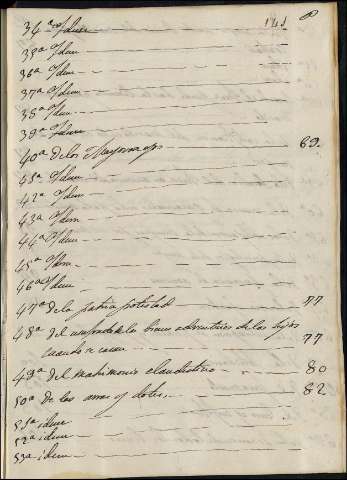 34ª Idem
35ª Idem
36ª Idem
37ª Idem
38ª Idem
39ª Idem
40ª De los Mayorazgos 69.
41ª Idem
42ª Idem
43ª Idem
44ª Idem
45ª Idem
46ª Idem
47ª De la patria potestad 77
48ª Del usufructo de los bienes adventicios de los hijos
cuando se casan 77
49ª Del matrimonio clandestino 80
50ª De las arras y dotes. 82
51ª idem
52ª idem
53ª idem